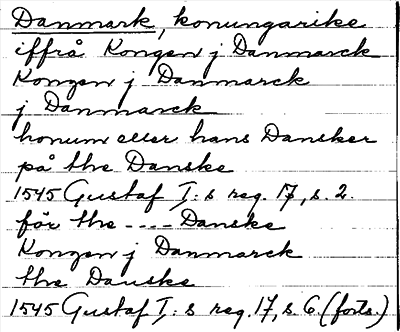 Danmark, konungarike
iffrå Kongen j Danmarck
Kongen j Danmarck
j Danmarck
honum eller hans Dansker
på the Danske
1545 Gustaf I:s reg. 17, s. 2.
för the ---- Danske
Kongen j Danmarck
the Danske
1545 Gustaf I:s reg. 17, s. 6. (forts.)